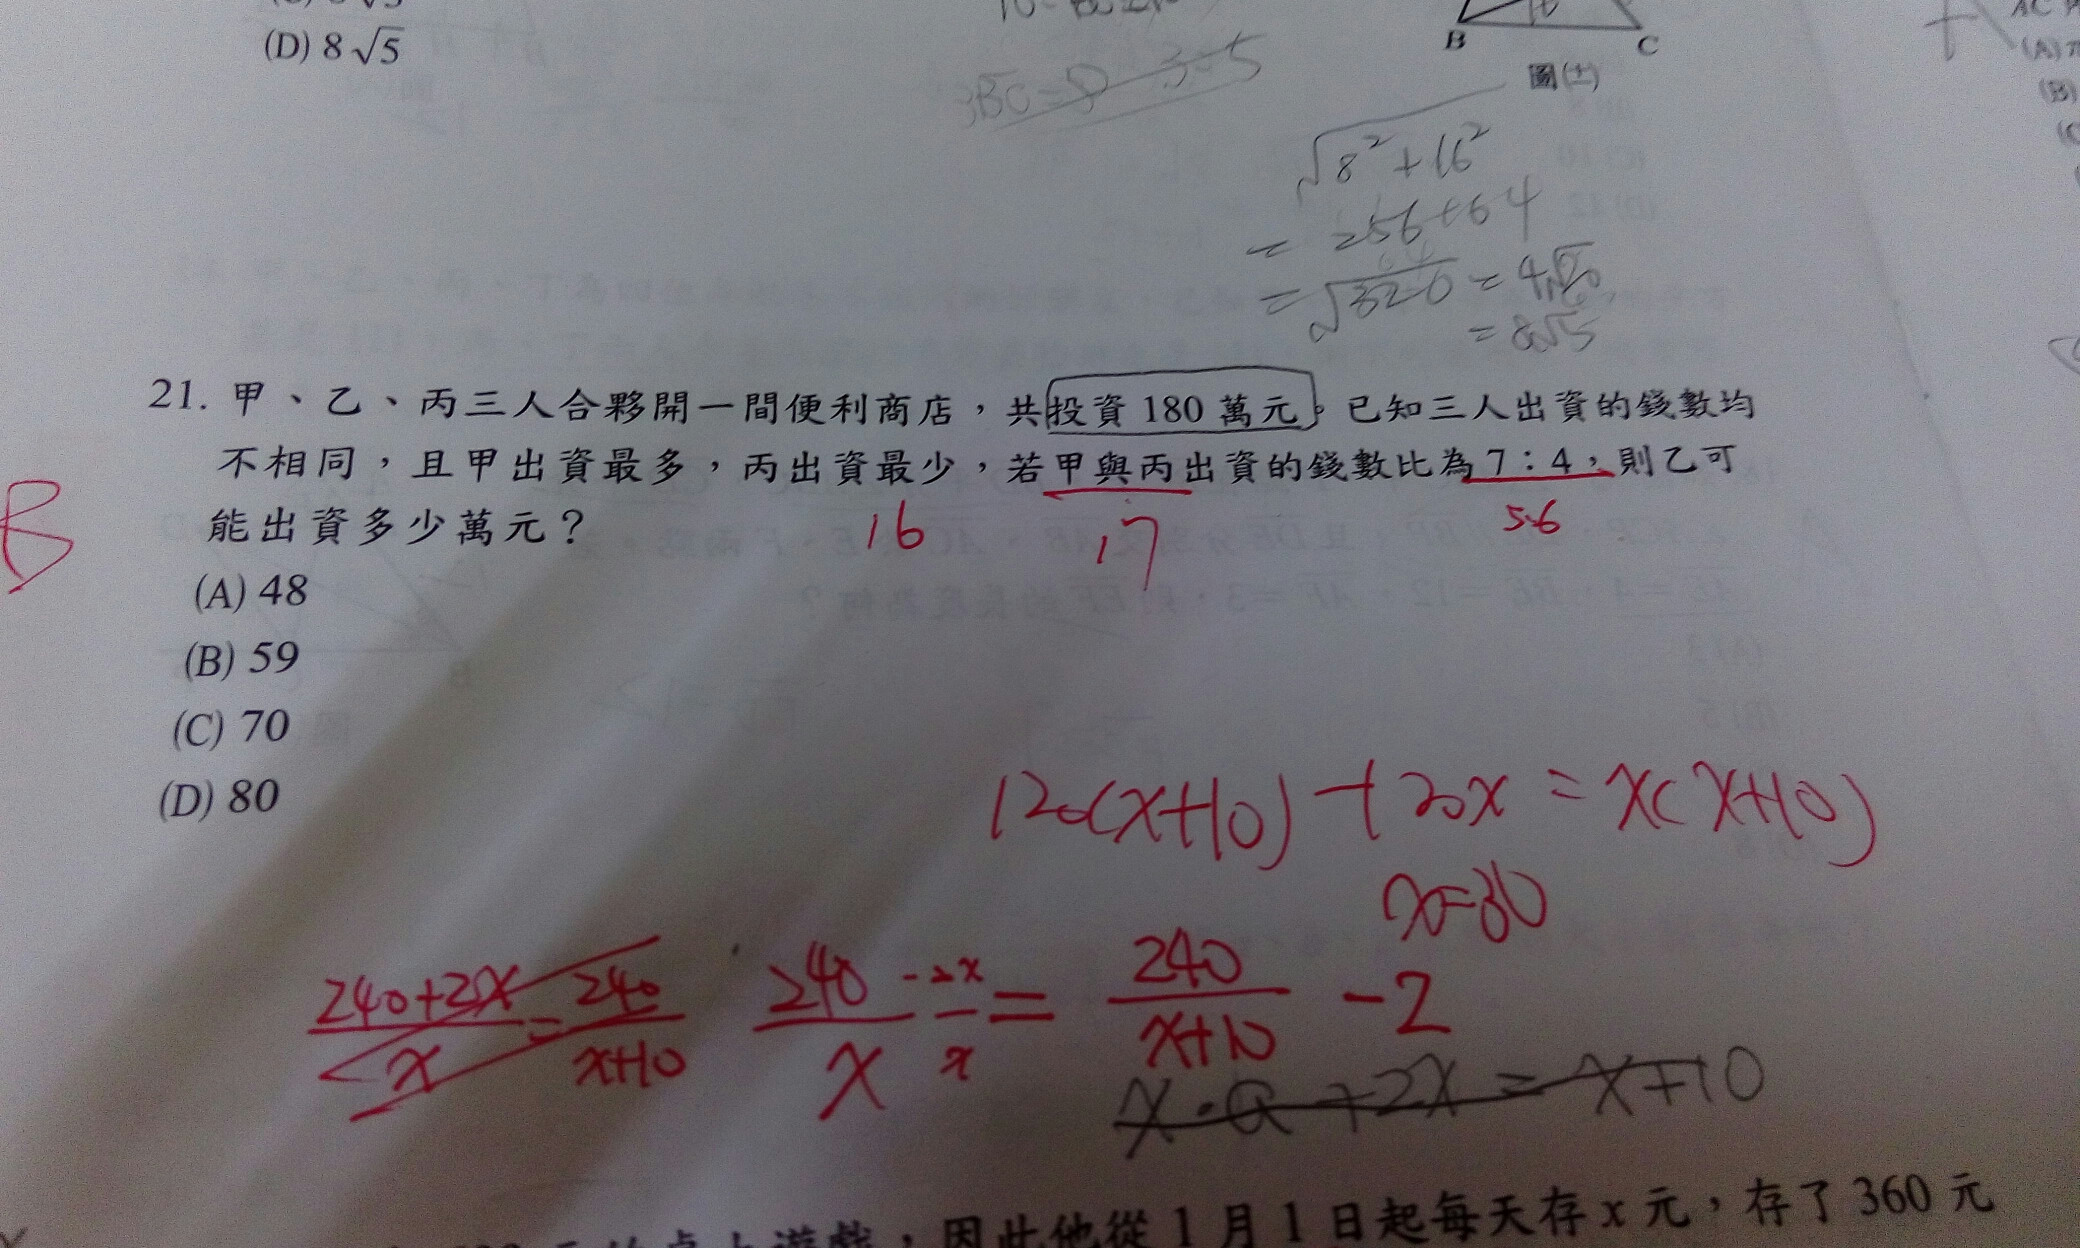 (D) 8√5
B
C
圖(十)
3BC=5
√8²+16²
= 256+64
= √320 = 4√20
= 8√5
21. 甲、乙、丙三人合夥開一間便利商店，共投資 180 萬元。已知三人出資的錢數均
不相同，且甲出資最多，丙出資最少，若甲與丙出資的錢數比為 7：4，則乙可
能出資多少萬元？
B
16
17
5.6
(A) 48
(B) 59
(C) 70
(D) 80
120(x+10)+20x = x(x+10)
x=30
240+2x/x = 240/x+10
240/x -2x/x = 240/x+10 -2
x·a+2x = x+10
因此他從 1 月 1 日起每天存 x 元，存了 360 元